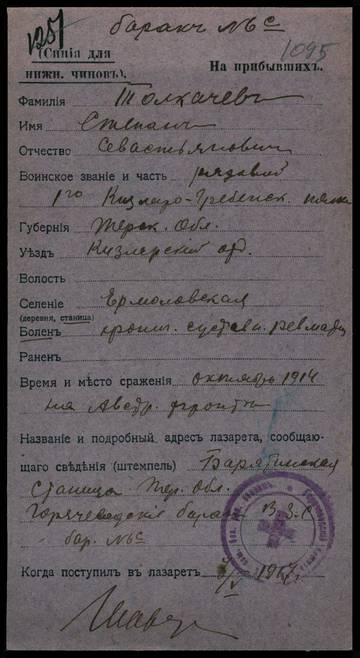 баракъ №6с
1251
1095
(Синія для
нижн. чиновъ).
На прибывшихъ.
Фамилія Толкачевъ
Имя Степанъ
Отчество Севастьяновичъ
Воинское званіе и часть рядовой
1го Кизляро-Гребенск. полка
Губернія Терск. Обл.
Уѣздъ Кизлярскій от.
Волость
Селеніе Ермоловская
(деревня, станица)
Боленъ хронич. суставн. ревмат
Раненъ
Время и мѣсто сраженія октябрь 1914
на Австр. фронтѣ
Названіе и подробный адресъ лазарета, сообщаю-
щаго свѣдѣнія (штемпель) Барятинская
станица Тер. Обл.
Горячеводскіе бараки В.З.С.
бар. №6с
Когда поступилъ въ лазаретъ 1917 г.